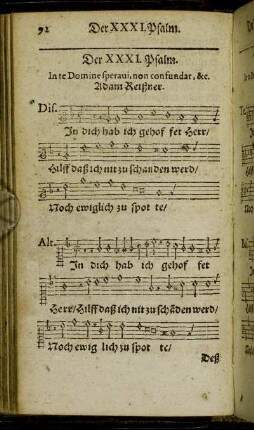 92 Der XXXI. Psalm.
Der XXXI. Psalm.
In te Domine speraui, non confundar, &c.
Adam Reißner.
Dis.
In dich hab ich gehof fet Herr/
Hilff daß ich nit zu schanden werd/
Noch ewiglich zu spot te/
Alt.
In dich hab ich gehof fet
Herr/Hilff daß ich nit zu schãden werd/
Noch ewig lich zu spot te/
Deß